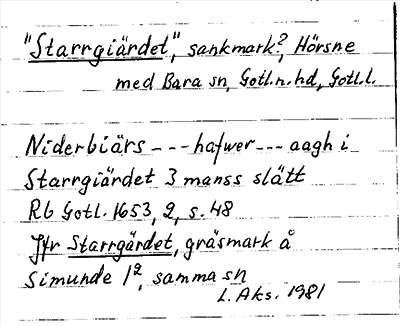 "Starrgiärdet", sankmark?, Hörsne
med Bara sn, Gotl.n.hd, Gotl.l.
Niderbiärs --- hafwer --- aagh i
Starrgiärdet 3 manss slätt
Rb Gotl. 1653, 2, s. 48
Jfr Starrgärdet, gräsmark å
Simunde 1², samma sn
L. Aks. 1981